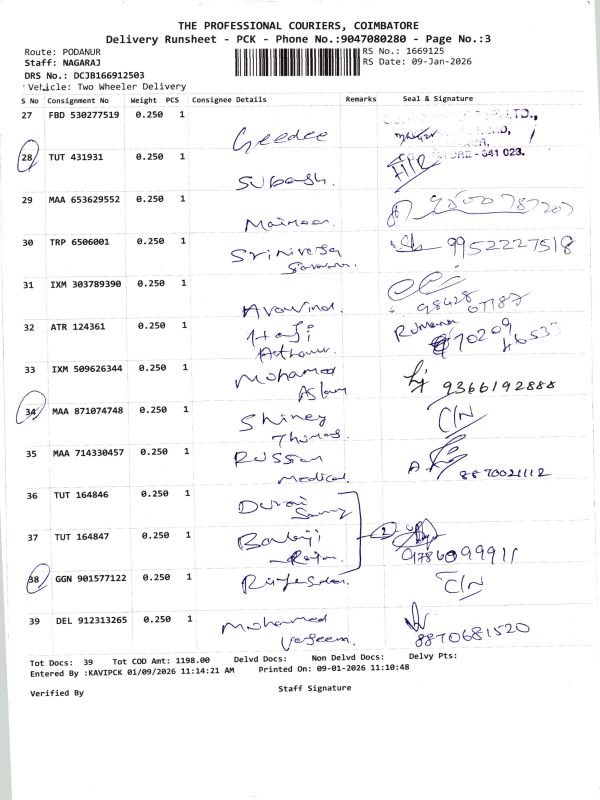 THE PROFESSIONAL COURIERS, COIMBATORE
Delivery Runsheet - PCK - Phone No.:9047080280 - Page No.:3
Route: PODANUR
RS No.: 1669125
Staff: NAGARAJ
RS Date: 09-Jan-2026
DRS No.: DCJB166912503
Vehicle: Two Wheeler Delivery
S No Consignment No Weight PCS Consignee Details Remarks Seal & Signature
27 FBD 530277519 0.250 1 Geedee LTD.,
28 TUT 431931 0.250 1 Subash. - 641 023.
29 MAA 653629552 0.250 1
30 TRP 6506001 0.250 1 Srinivasa 9952227518
31 IXM 303789390 0.250 1 Aravind. 98428 07187
32 ATR 124361 0.250 1 Haji Rumana 70209
33 IXM 509626344 0.250 1 Mohamed Aslam 9366192888
34 MAA 871074748 0.250 1 Shiney Thomas. C/N
35 MAA 714330457 0.250 1 Russian Medical. 8870021112
36 TUT 164846 0.250 1 Durai Samy
37 TUT 164847 0.250 1 Balaji Raja. 2
38 GGN 901577122 0.250 1 C/N
39 DEL 912313265 0.250 1 Mohamed Vaseem. 8870681520
Tot Docs: 39 Tot COD Amt: 1198.00 Delvd Docs: Non Delvd Docs: Delvy Pts:
Entered By :KAVIPCK 01/09/2026 11:14:21 AM Printed On: 09-01-2026 11:10:48
Verified By Staff Signature